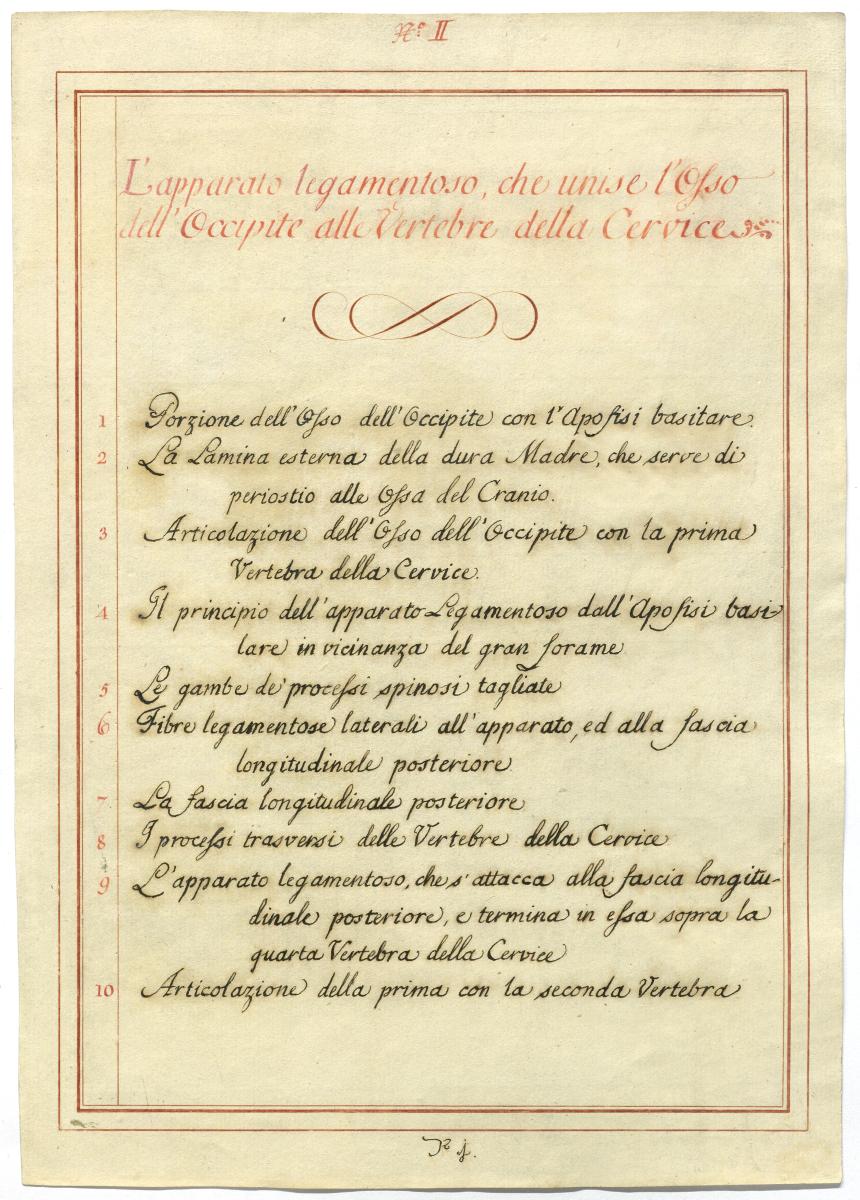 N.º II
L'apparato legamentoso, che unise l'Osso
dell'Occipite alle Vertebre della Cervice
1 Porzione dell'Osso dell'Occipite con l'Apofisi basitare.
2 La Lamina esterna della dura Madre, che serve di
periostio alle Ossa del Cranio.
3 Articolazione dell'Osso dell'Occipite con la prima
Vertebra della Cervice.
4 Il principio dell'apparato Legamentoso dall'Apofisi basi-
lare in vicinanza del gran forame
5 Le gambe de' processi spinosi tagliate
6 Fibre legamentose laterali all'apparato, ed alla fascia
longitudinale posteriore
7 La fascia longitudinale posteriore
8 I processi trasversi delle Vertebre della Cervice
9 L'apparato legamentoso, che s'attacca alla fascia longitu-
dinale posteriore, e termina in essa sopra la
quarta Vertebra della Cervice
10 Articolazione della prima con la seconda Vertebra